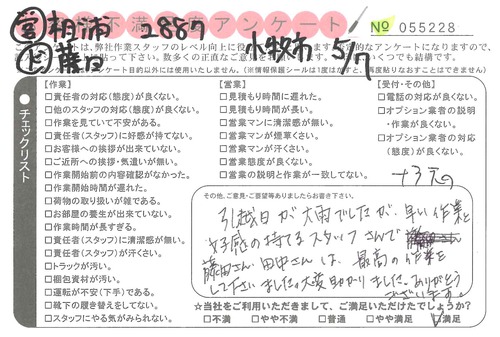 ㊂相浦 2887
不満 のアンケート
№ 055228
㊀藤口 小牧市 5/7
ケートは、弊社作業スタッフのレベル向上に役
定期的なアンケートになりますので、
思った事は何でもお書き下さい。数多くの正直なご意見を
いくつでも結構です。
アンケート目的以外には使用いたしません。(※情報保護シールは1度はがすと、再度貼りなおすことはできません)
チェックリスト
【作業】
□責任者の対応(態度)が良くない。
□他のスタッフの対応(態度)が良くない。
□作業を見ていて不安がある。
□責任者(スタッフ)に好感が持てない。
□お客様への挨拶が出来ていない。
□ご近所への挨拶・気遣いが無い。
□作業開始前の内容確認がなかった。
□作業開始時間が遅れた。
□荷物の取り扱いが雑である。
□お部屋の養生が出来ていない。
□作業時間が長すぎる。
□責任者(スタッフ)に清潔感が無い。
□責任者(スタッフ)が汗くさい。
□トラックが汚い。
□梱包資材が汚い。
□運転が不安(下手)である。
□靴下の履き替えをしてない。
□スタッフにやる気がみられない。
【営業】
□見積もり時間に遅れた。
□見積もり時間が長い。
□営業マンに清潔感が無い。
□営業マンが煙草くさい。
□営業マンが汗くさい。
□営業態度が良くない。
□営業の説明と作業が一致してない。
【受付・その他】
□電話の対応が良くない。
□オプション業者の説明
・作業が良くない。
□オプション業者の対応
(態度)が良くない。
その他、ご意見・ご要望等ありましたらお書き下さい。
引越日が大雨でしたが、早い作業と
好感の持てるスタッフさんで
藤田さん、田中さんは、最高の作業を
して下さいました。大変助かりました。ありがとう
ございます。
☆当社をご利用いただきまして、ご満足いただけたでしょうか?
□不満 □やや不満 □普通 □やや満足 □満足